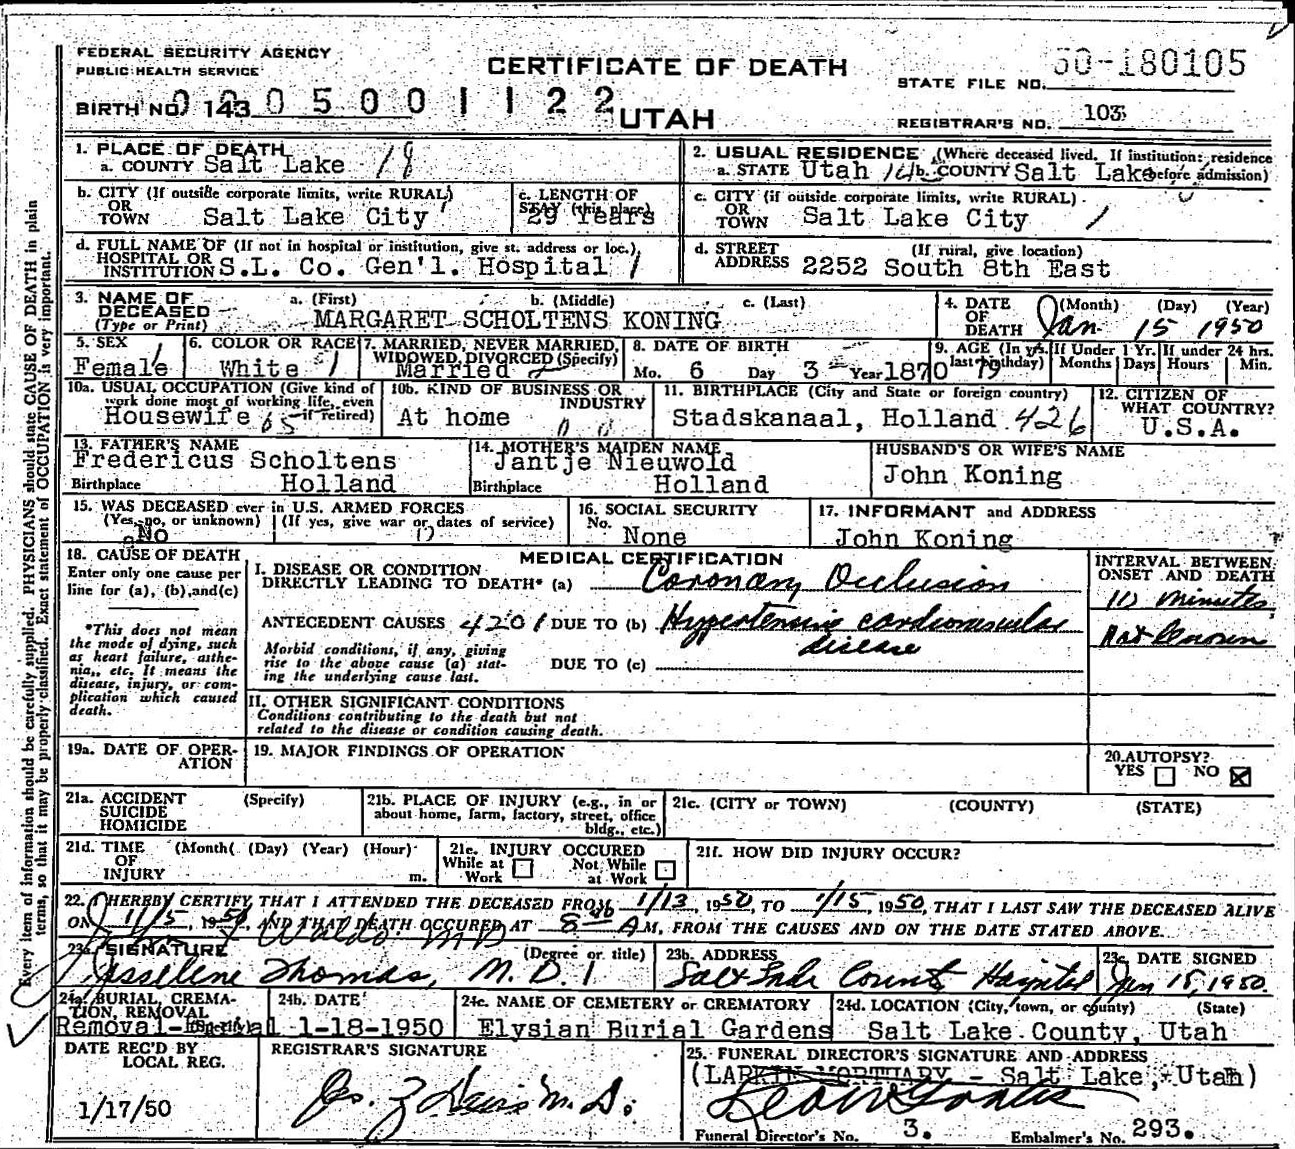 FEDERAL SECURITY AGENCY
PUBLIC HEALTH SERVICE
CERTIFICATE OF DEATH
UTAH
STATE FILE NO. 50-180105
BIRTH NO. 143 0005001122
REGISTRAR'S NO. 103
1. PLACE OF DEATH
a. COUNTY Salt Lake 18
2. USUAL RESIDENCE (Where deceased lived. If institution: residence before admission)
a. STATE Utah b. COUNTY Salt Lake
b. CITY (If outside corporate limits, write RURAL)
OR TOWN Salt Lake City
c. LENGTH OF STAY (this place) 29 Years
c. CITY (if outside corporate limits, write RURAL)
OR TOWN Salt Lake City
d. FULL NAME OF (If not in hospital or institution, give st. address or loc.)
HOSPITAL OR INSTITUTION S.L. Co. Gen'l. Hospital
d. STREET ADDRESS (If rural, give location)
2252 South 8th East
3. NAME OF DECEASED (Type or Print)
a. (First) b. (Middle) c. (Last)
MARGARET SCHOLTENS KONING
4. DATE OF DEATH (Month) (Day) (Year)
Jan 15 1950
5. SEX Female
6. COLOR OR RACE White
7. MARRIED, NEVER MARRIED, WIDOWED, DIVORCED (Specify) Married
8. DATE OF BIRTH
Mo. 6 Day 3 Year 1870
9. AGE (In yrs. last birthday) 79
If Under 1 Yr. Months Days
If under 24 hrs. Hours Min.
10a. USUAL OCCUPATION (Give kind of work done most of working life, even if retired)
Housewife
10b. KIND OF BUSINESS OR INDUSTRY
At home
11. BIRTHPLACE (City and State or foreign country)
Stadskanaal, Holland 426
12. CITIZEN OF WHAT COUNTRY?
U.S.A.
13. FATHER'S NAME
Fredericus Scholtens
Birthplace Holland
14. MOTHER'S MAIDEN NAME
Jantje Nieuwold
Birthplace Holland
HUSBAND'S OR WIFE'S NAME
John Koning
15. WAS DECEASED ever in U.S. ARMED FORCES
(Yes, no, or unknown) (If yes, give war or dates of service)
No
16. SOCIAL SECURITY
No. None
17. INFORMANT and ADDRESS
John Koning
18. CAUSE OF DEATH
Enter only one cause per line for (a), (b), and (c)
*This does not mean the mode of dying, such as heart failure, asthenia, etc. It means the disease, injury, or complication which caused death.
MEDICAL CERTIFICATION
I. DISEASE OR CONDITION
DIRECTLY LEADING TO DEATH* (a) Coronary Occlusion
ANTECEDENT CAUSES 4201 DUE TO (b) Hypertensive cardiovascular disease
Morbid conditions, if any, giving rise to the above cause (a) stating the underlying cause last.
DUE TO (c)
INTERVAL BETWEEN ONSET AND DEATH
10 minutes
Not known
II. OTHER SIGNIFICANT CONDITIONS
Conditions contributing to the death but not related to the disease or condition causing death.
19a. DATE OF OPERATION
19. MAJOR FINDINGS OF OPERATION
20. AUTOPSY?
YES NO
21a. ACCIDENT SUICIDE HOMICIDE (Specify)
21b. PLACE OF INJURY (e.g., in or about home, farm, factory, street, office bldg., etc.)
21c. (CITY or TOWN) (COUNTY) (STATE)
21d. TIME OF INJURY (Month) (Day) (Year) (Hour) m.
21e. INJURY OCCURED
While at Work Not While at Work
21f. HOW DID INJURY OCCUR?
22. I HEREBY CERTIFY THAT I ATTENDED THE DECEASED FROM 1/13, 1950, TO 1/15, 1950, THAT I LAST SAW THE DECEASED ALIVE
ON 1/15, 1950, AND THAT DEATH OCCURED AT 8 AM, FROM THE CAUSES AND ON THE DATE STATED ABOVE.
23a. SIGNATURE (Degree or title)
Thomas, M.D.
23b. ADDRESS
Salt Lake County Hospital
23c. DATE SIGNED
Jan 15, 1950
24a. BURIAL, CREMATION, REMOVAL (Specify)
Removal-Burial
24b. DATE
1-18-1950
24c. NAME OF CEMETERY or CREMATORY
Elysian Burial Gardens
24d. LOCATION (City, town, or county) (State)
Salt Lake County, Utah
DATE REC'D BY LOCAL REG.
1/17/50
REGISTRAR'S SIGNATURE
25. FUNERAL DIRECTOR'S SIGNATURE AND ADDRESS
(LARKIN MORTUARY - Salt Lake, Utah)
Funeral Director's No. 3.
Embalmer's No. 293.
Every item of information should be carefully supplied. PHYSICIANS should state CAUSE OF DEATH in plain
terms, so that it may be properly classified. Exact statement of OCCUPATION is very important.